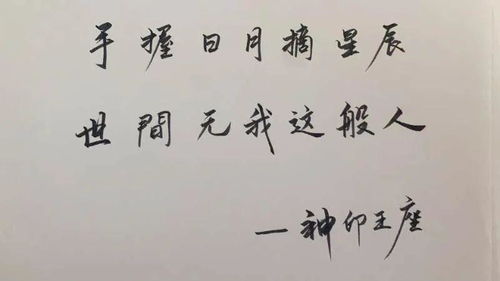 手握日月摘星辰
世間无我这般人
—神印王座